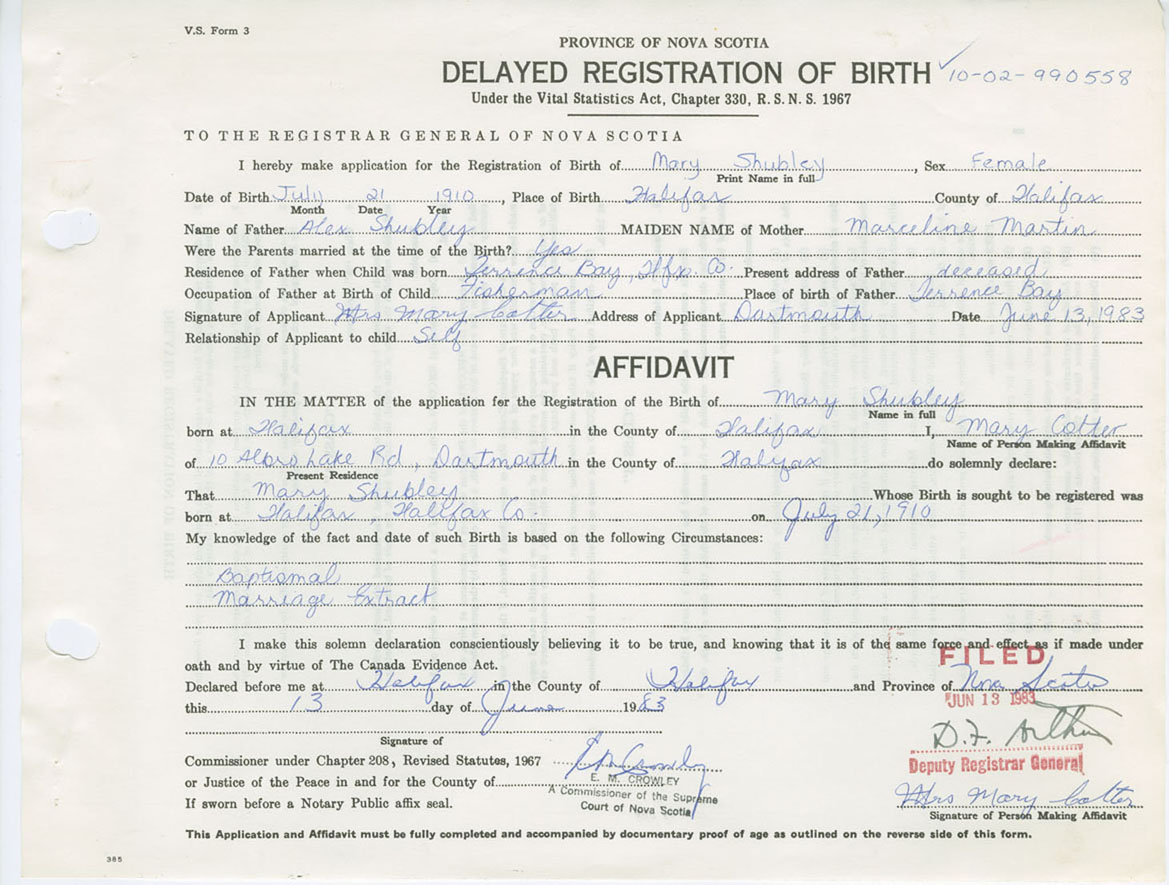 V.S. Form 3
PROVINCE OF NOVA SCOTIA
DELAYED REGISTRATION OF BIRTH 10-02-990558
Under the Vital Statistics Act, Chapter 330, R.S.N.S. 1967
TO THE REGISTRAR GENERAL OF NOVA SCOTIA
I hereby make application for the Registration of Birth of Mary Shubley, Sex Female
Print Name in full
Date of Birth July 21 1910, Place of Birth Halifax County of Halifax
Month Date Year
Name of Father Alex Shubley MAIDEN NAME of Mother Marceline Martin
Were the Parents married at the time of the Birth? Yes
Residence of Father when Child was born Terrence Bay, Hfx. Co. Present address of Father deceased
Occupation of Father at Birth of Child Fisherman Place of birth of Father Terrence Bay
Signature of Applicant Mrs Mary Cotter Address of Applicant Dartmouth Date June 13, 1983
Relationship of Applicant to child Self
AFFIDAVIT
IN THE MATTER of the application for the Registration of the Birth of Mary Shubley
Name in full
born at Halifax in the County of Halifax I, Mary Cotter
Name of Person Making Affidavit
of 10 Albro Lake Rd, Dartmouth in the County of Halifax do solemnly declare:
Present Residence
That Mary Shubley Whose Birth is sought to be registered was
born at Halifax, Halifax Co. on July 21, 1910
My knowledge of the fact and date of such Birth is based on the following Circumstances:
Baptismal
Marriage Extract
I make this solemn declaration conscientiously believing it to be true, and knowing that it is of the same force and effect as if made under
oath and by virtue of The Canada Evidence Act.
FILED
Declared before me at Halifax in the County of Halifax and Province of Nova Scotia
JUN 13 1983
this 13 day of June 1983
D.F. Arthur
Signature of
Commissioner under Chapter 208, Revised Statutes, 1967 E M Crowley
Deputy Registrar General
or Justice of the Peace in and for the County of
E. M. CROWLEY
A Commissioner of the Supreme
Court of Nova Scotia
If sworn before a Notary Public affix seal.
Mrs Mary Cotter
Signature of Person Making Affidavit
This Application and Affidavit must be fully completed and accompanied by documentary proof of age as outlined on the reverse side of this form.
385